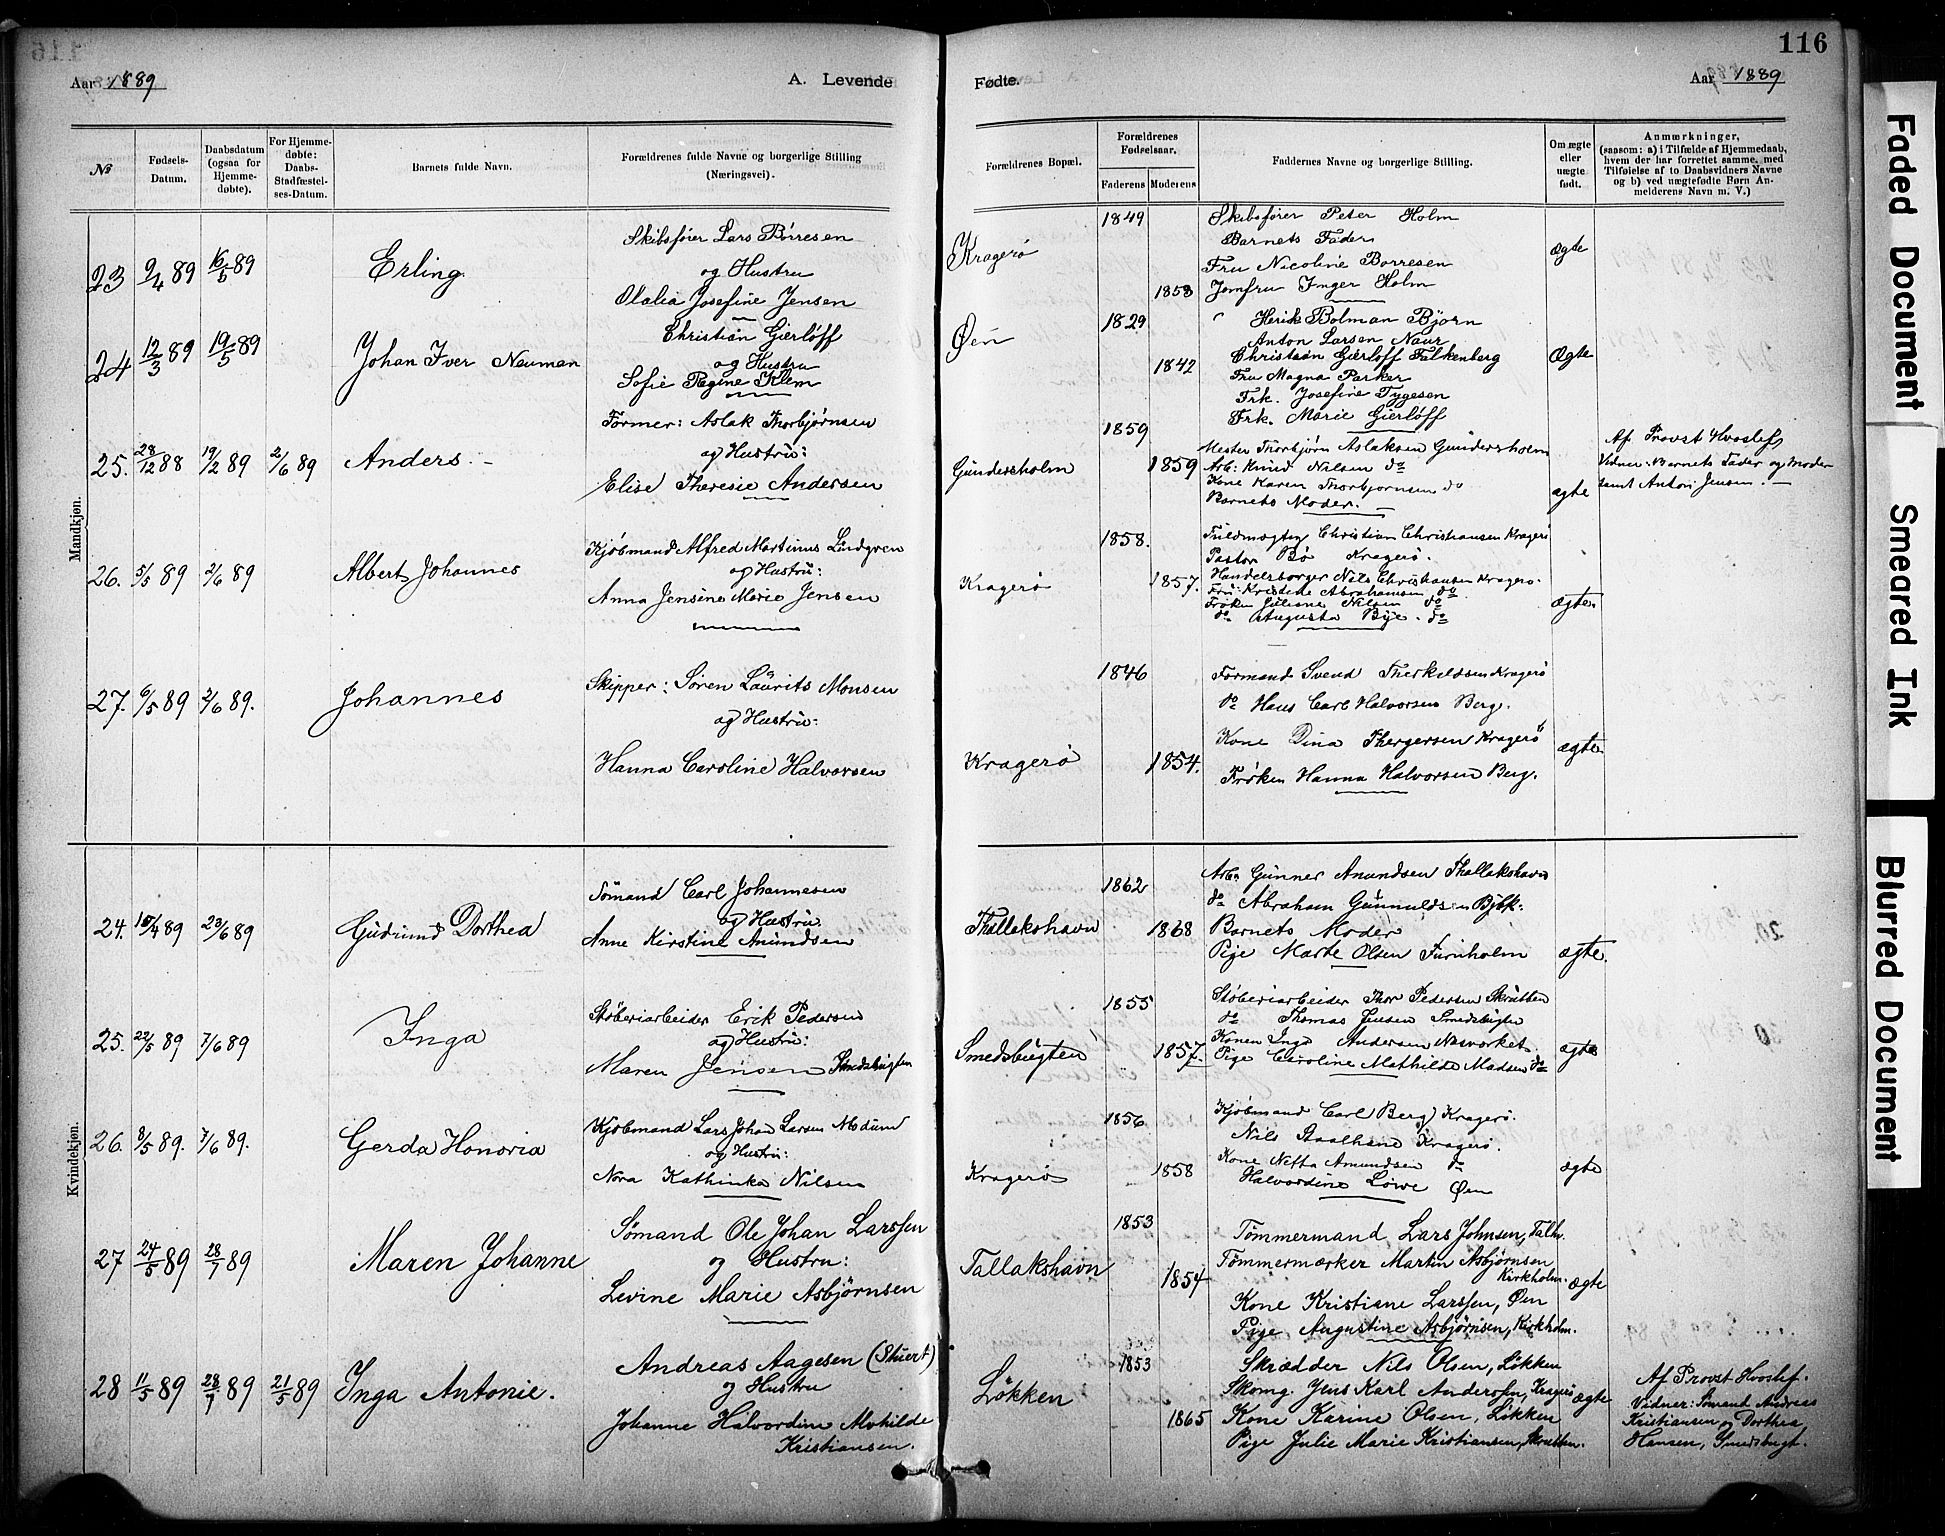 116
Aar 1889
A. Levende
Fødte.
Aar 1889
№
Fødsels-Datum.
Daabsdatum (ogsaa for Hjemme-døbte).
For Hjemme-døbte: Daabs-Stadfæstel-ses-Datum.
Barnets fulde Navn.
Forældrenes fulde Navne og borgerlige Stilling (Næringsvei).
Forældrenes Bopæl.
Forældrenes Fødselsaar.
Faderens
Moderens
Faddernes Navne og borgerlige Stilling.
Om ægte eller uægte født.
Anmærkninger,
(saasom: a) i Tilfælde af Hjemmedaab,
hvem der har forrettet samme, med
Tilføielse af to Daabsvidners Navne
og b) ved uægtefødte Børn An-
melderens Navn m. V.)
Mandkjøn.
23 9/4 89 16/5 89 Erling.
Skibsfører Lars Börresen
og Hustru
Olalia Josefine Jensen
Kragerø
1849
1853
Skibsfører Peter Holm
Barnets Fader
Fru Nicoline Borresen
Jomfru Inger Holm
ægte
24 12/3 89 19/5 89 Johan Iver Neuman
Christian Gierløff
og Hustru
Sofie Regine Klem
Øen
1829
1842
Henrik Bolman Bjørn
Anton Larsen Naur
Christian Gierløff Falkenberg
Fru Magna Parker
Frk. Josefine Tygesen
Frk. Marie Gierløff
Ægte
25. 28/12 88 19/2 89 2/6 89 Anders. -
Former: Aslak Thorbjørnsen
og Hustru:
Elise Theresie Andersen
Gundersholm
1859
1859
Mester Thorbjørn Aslaksen Gundersholm
Arb: Knud Nilsen do
Kone Karen Thorbjørnsen do
Barnets Moder.
ægte
Af Provst Hvoslef,
Vidner: Barnets Fader og Moder
samt Anton Jensen. -
26. 5/5 89 2/6 89 Albert Johannes
Kjöbmand Alfred Martinus Lindgren
og Hustru:
Anna Jensine Marie Jensen
Kragerø
1858.
1857.
Fuldmægtig Christian Christiansen Kragerø
Pastor Bø Kragerø.
Handelsborger Nils Christiansen Kragerø.
Fru Kristine Abrahamsen do
Frøken Juliane Nilsen do
do Augusta Bye. do
ægte.
27. 6/5 89 2/6 89. Johannes
Skipper: Søren Laurits Monsen
og Hustru:
Hanna Caroline Halvorsen
Kragerø
1846
1854.
Formand Svend Therkeldsen Kragerø
do Hans Carl Halvorsen Berg.
Kone Dina Thergersen Kragerø
Frøken Hanna Halvorsen Berg.
ægte.
Kvindekjøn.
24. 10/4 89 23/6 89 Gudrund Dorthea
Sømand Carl Johannesen
og Hustru.
Anne Kirstine Amundsen
Thallakshavn
1862
1868
Arb. Gunner Amundsen Thallakshavn
do Abraham
Barnets Moder
Pige Marte Olsen Furuholm
ægte.
25. 22/5 89 7/6 89 Inga
Støberiarbeider Erik Pedersen
og Hustru:
Maren Jensen Smedsbugten
Smedsbugten
1855
1857.
Støberiarbeider Thor Pedersen Skrubben
do Thomas Jensen Smedsbugten
Konen Inga Andersen
Pige Caroline Mathilde Madsen do
ægte
26. 8/5 89. 7/6 89. Gerda Honoria
Kjöbmand Lars Johan Larsen Modum
og Hustru:
Nora Kathinka Nilsen
Kragerø
1856
1858
Kjøbmand Carl Berg, Kragerø.
Nils Staalhane Kragerø.
Kone Netta Amundsen do
Halvordine Løwe Øen
ægte
27 24/5 89 28/7 89 Maren Johanne
Sømand Ole Johan Larssen
og Hustru:
Levine Marie Asbjørnsen
Tallakshavn
1853
1854
Tømmermand Lars Johnsen, Talh.
Tømmermærker Martin Asbjørnsen
Kirkholm.
Kone Kristiane Larssen, Øen
Pige Augustine Asbjørnsen, Kirkholm.
ægte
28 11/5 89 28/7 89 21/5 89 Inga Antonie.
Andreas Aagesen (Stuert)
og Hustru
Johanne Halvordine Mathilde
Kristiansen.
Løkken
1853
1865
Skrædder Nils Olsen, Løkken
Skomg. Jens Karl Anderssen, Kragerø
Kone Karine Olsen, Løkken
Pige Julie Marie Kristiansen, Skrubben.
ægte
Af Provst Hvoslef.
Vidner: Sømand Andreas
Kristiansen og Dorthea
Hansen, Smedsbugt.
Faded Document
Smeared Ink
Blurred Document